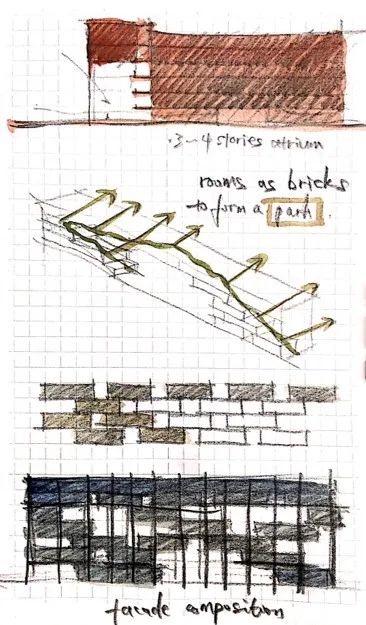 .3~4 stories atrium
rooms as bricks
to form a park.
facade composition